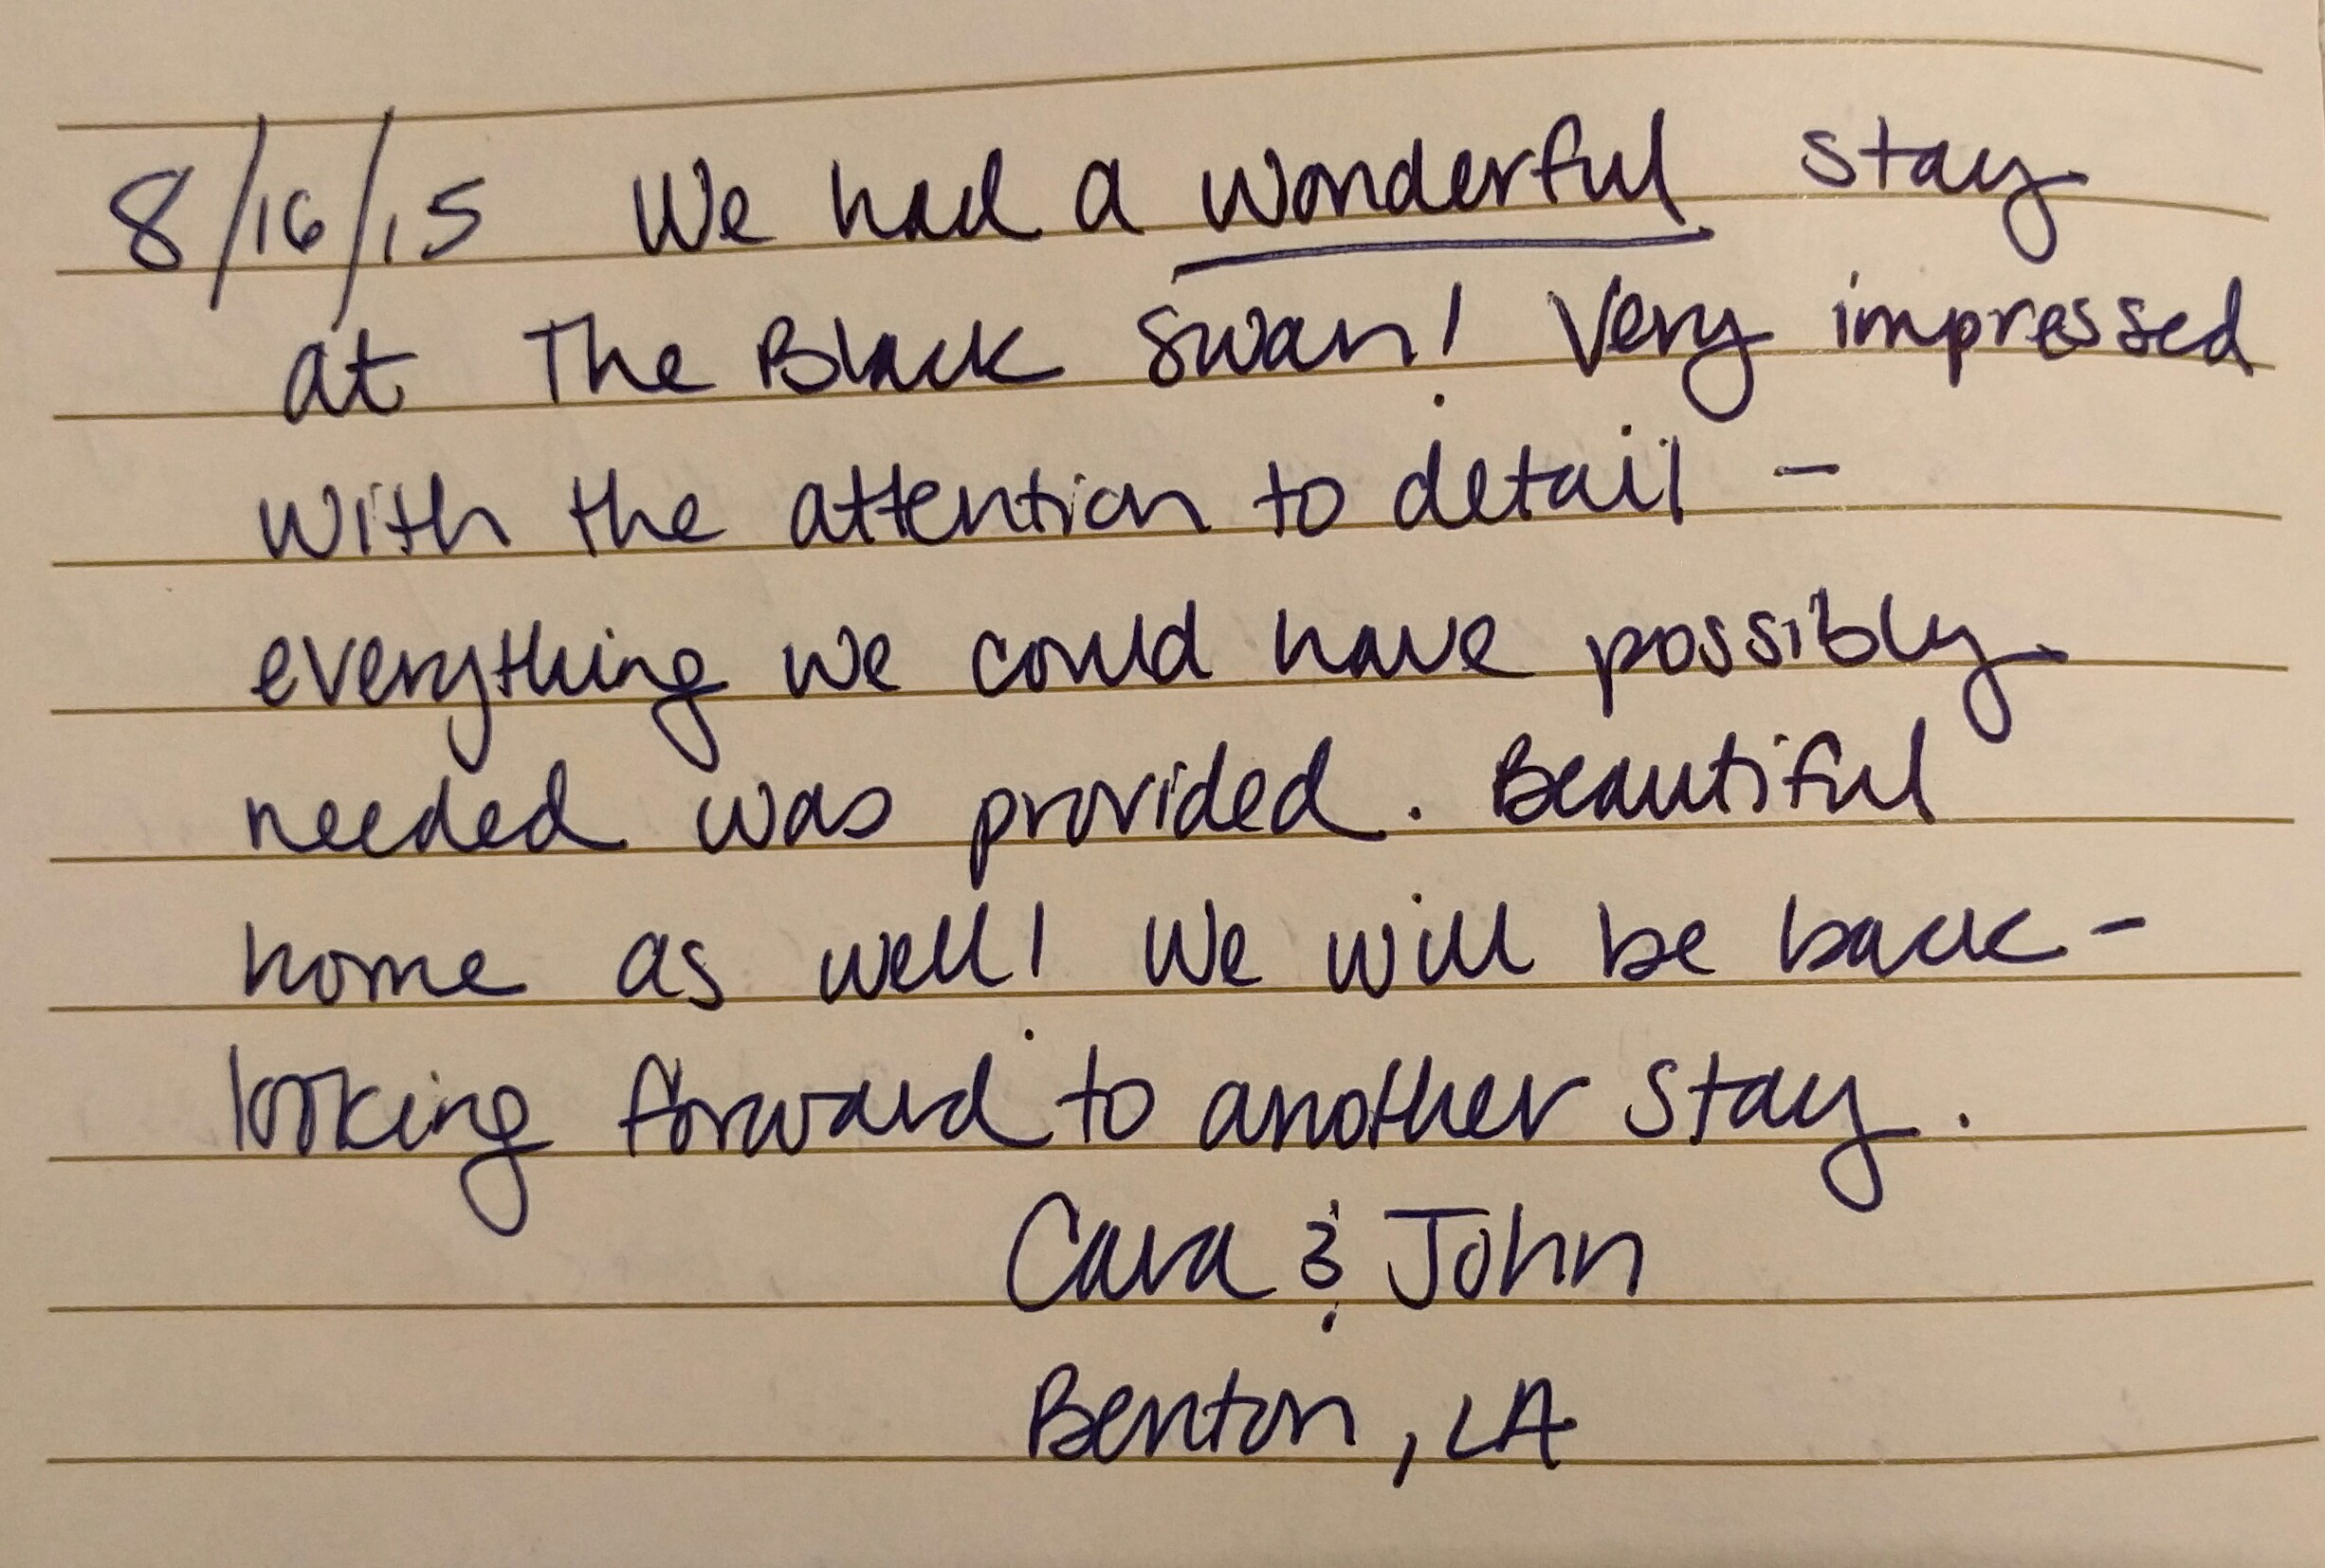 8/16/15 We had a wonderful stay
at The Black Swan! Very impressed
with the attention to detail -
everything we could have possibly
needed was provided. Beautiful
home as well! We will be back -
looking forward to another stay.
Cara & John
Benton, LA